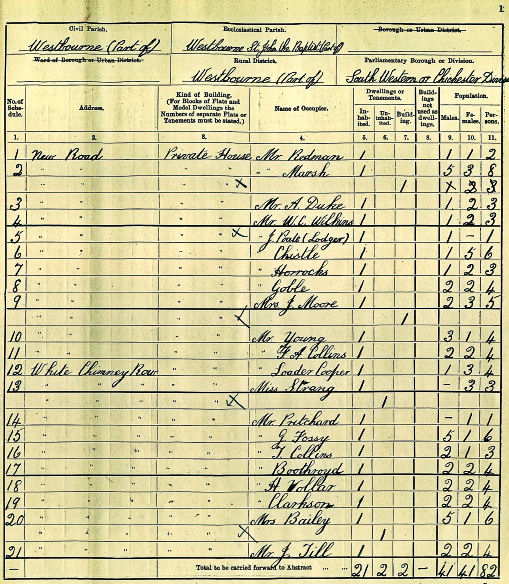 1
Civil Parish. Ecclesiastical Parish. Borough or Urban District.
Westbourne (Part of) Westbourne St. John the Baptist (Part of)
Ward of Borough or Urban District. Rural District. Parliamentary Borough or Division.
Westbourne (Part of) South Western or Chichester
No. of Schedule. Address. Kind of Building. (For Blocks of Flats and Model Dwellings the Numbers of separate Flats or Tenements must be stated.) Name of Occupier. Dwellings or Tenements. Inhabited. Uninhabited. Building. Buildings not used as dwellings. Population. Males. Females. Persons.
1. 2. 3. 4. 5. 6. 7. 8. 9. 10. 11.
1 New Road Private House Mr Redman 1 1 1 2
2 " " " " " Marsh 1 5 3 8
" " " x 1 x 2 3
3 " " " " Mr A. Duke 1 1 2 3
4 " " " " Mr W. C. Wilkins 1 1 2 3
5 " " " x " J. Poate (Lodger) 1 1 - 1
6 " " " " " Chistle 1 1 5 6
7 " " " " " Horrocks 1 1 2 3
8 " " " " " Goble 1 2 2 4
9 " " " " Mrs J. Moore 1 2 3 5
" " " x 1
10 " " " " Mr Young 1 3 1 4
11 " " " " " F A Collins 1 2 2 4
12 White Chimney Row " " " Loader Cooper 1 1 3 4
13 " " " " Miss Strang 1 - 3 3
" " " x 1
14 " " " " Mr Pritchard 1 - 1 1
15 " " " " " G Fossy 1 5 1 6
16 " " " " " T Collins 1 2 1 3
17 " " " " " Boothroyd 1 2 2 4
18 " " " " " H Vollar 1 2 2 4
19 " " " " " Clarkson 1 2 2 4
20 " " " " Mrs Bailey 1 5 1 6
" " " x 1
21 " " " " Mr J. Till 1 2 2 4
— Total to be carried forward to Abstract ... ... 21 2 2 - 41 41 82